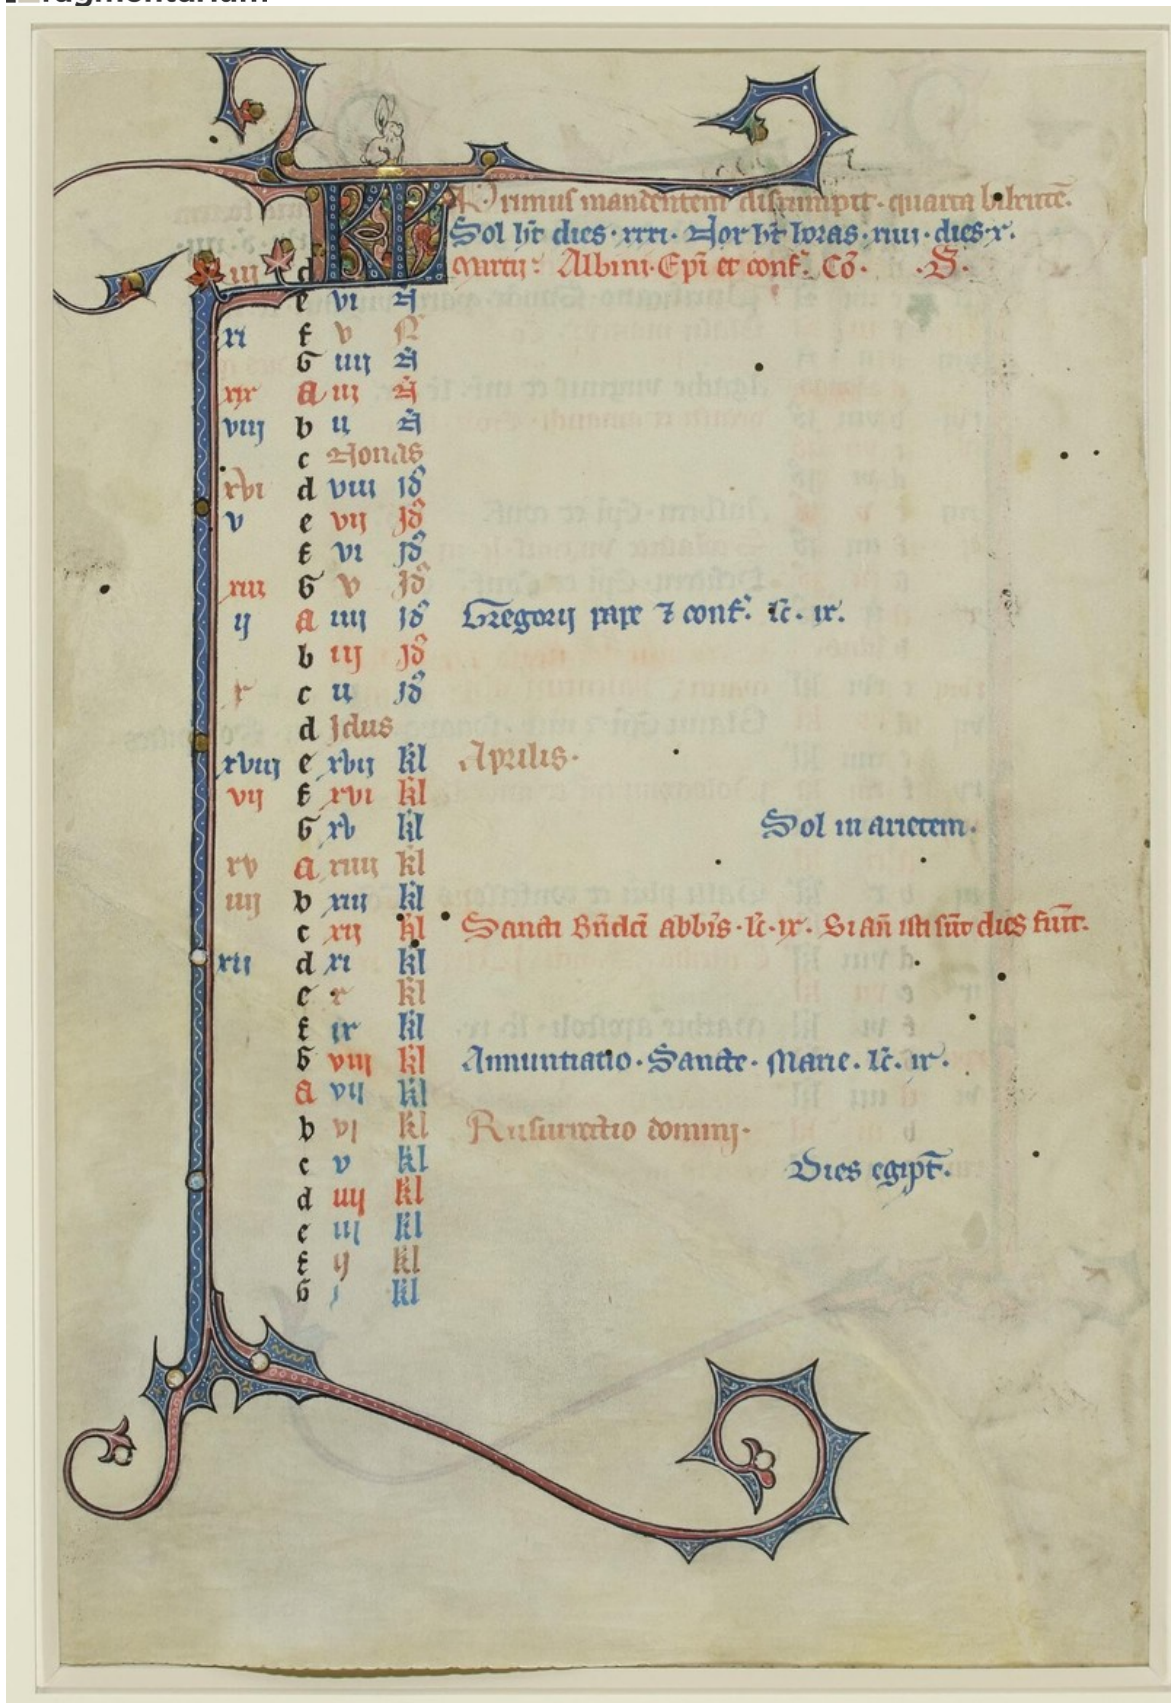 Fragmentarium
KL Primus mandentem disrumpit · quarta bibentē.
Sol hēt dies · xxxi · Nox hēt horas · xiiii · dies · x ·
iij d Martij : Albini · Epī et conf̄. Cō · · D ·
e vi N̄
xi f v N̄
G iiij N̄
xix a iij N̄
viij b ij N̄
c Nonas
xvi d viij Id̄
v e vij Id̄
f vi Id̄
xiij G v Id̄
ij a iiij Id̄ Gregorij pape ⁊ conf̄. lc̄. ix.
b iij Id̄
x c ij Id̄
d Idus
xviij e xvij kl Aprilis ·
vij f xvi kl
G xv kl Sol in arietem ·
xv a xiiij kl
iiij b xiij kl
c xij kl Sancti Bn̄dc̄i abbīs · lc̄ · ix ·
xij d xi kl
e x kl
f ix kl
G viij kl Annuntiatio · Sancte · Marie · lc̄ · ix ·
a vij kl
b vj kl Resurrectio dominj ·
c v kl Dies egipt̄ ·
d iiij kl
e iij kl
f ij kl
G j kl